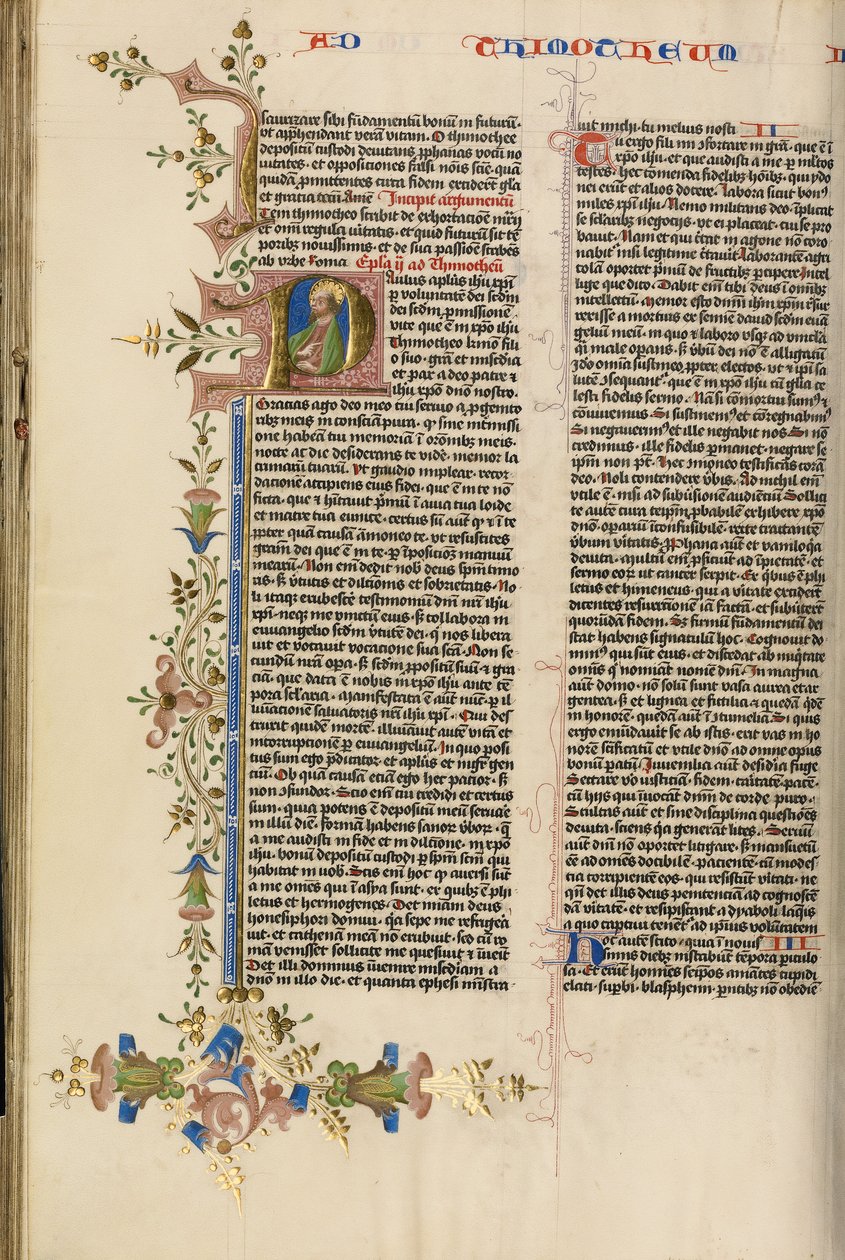 AD THIMOTHEUM
saurizare sibi fūdamentū bonū in futurū·
vt apphendant verā vitam· O thimothee
depositū custodi deuitans pphanas vocū no
uitates· et oppositiones falsi nōis scīe· quā
quidā pmittentes circa fidem exciderūt grā
et gratia tecū Amē Incipit argumentū
Item thimotheo scribit de exhortacione mrīj
et om̄i regula uitatis· et quid futurū sit tē
poribꝫ nouissimis· et de sua passiōe scribēs
ab vrbe Roma Epl'a ij ad Thimotheū
Paulus apl'us ihu xpī
p voluntatē dei scdm
dei scdm pmissionē
vite que ē in xpō ihu
Thimotheo krmō fili
o suo· grā et misc̄dia
et pax a deo patre et
ihu xpō dn̄o nostro·
Gracias ago deo meo cui seruio a pgenito
ribꝫ meis in consciā pura· ꝙ sine intmissi
one habeā tui memoriā ī orōnibꝫ meis·
nocte ac die desiderans te videʼ memor la
crimarū tuarū· Vt gaudio implear· recor
dacionē accipiens eius fidei· que ē in te nō
ficta· que et hītauit pmū ī auia tua loide
et matre tua eunice· certus sū aūt ꝙ et ī te
ppter quā causā āmoneo te· vt resuscites
grām dei que ē in te· p īpositiōꝫ manuū
mearū· Non em̄ dedit nobʼ deus spm̄ timo
ris· sꝫ vʼtutis et dilcōnis et sobrietatis· No
li itaqꝫ erubescʼe testimoniū dn̄i nr̄i ihu
xpī· neqꝫ me vinctū eius· sꝫ collabora in
euuangelio scdm vtutē dei· ꝗ nos libera
uit et vocauit vocatione sua scā· Non se
cundū nr̄a opa· sꝫ scdm ppositū suū· et gra
ciā· que data ē nobis in xpō ihu ante tē
pora sclaria· Manifestata ē aūt nūc· p il
luminationē saluatoris nr̄i ihu xpī· Qui des
truxit quidē mortē· illuminauit autē vitā et
incorruptionē p euuangeliū· In quo posi
tus sum ego pdicator· et aplūs et mgr̄ gen
ciū· Ob quā causā etiā ego hec patior· sꝫ
non ꝯfundor· Scio em̄ cui credidi et certus
sum· quia potens ē depositū meū seruare
in illū diē· Formā habens sanoꝝ vʼboꝝ· ꝗ
a me audisti in fide et in dilcōne· in xpō
ihu· bonū depositū custodi p spm̄ scm̄ qui
habitat in uobʼ· Scis em̄ hoc ꝙ auersi sūt
a me omēs qui ī asya sunt· ex quibꝫ ē phi
letus et hermogenes· Det miām deus
honesiphori domui· qa sepe me refrigera
uit· et cathenā meā nō erubuit· sed cū ro
mā venisset sollicite me quesiuit et īueīt
Det illi dominus inuenire misc̄diam a
dn̄o in illo die· et quanta ephesi ministra·
uit michi· tu melius nosti II
Tu ergo fili mi ꝯfortare in grā· que ē ī
xpō ihu· et que audisti a me p mltos
testes· hec comenda fidelibꝫ hōibꝫ· qui ydo
nei erūt et alios docere· Labora sicut bonʼ
miles xpī ihu· Nemo militans deo· īplicat
se sclaribꝫ negocijs· vt ei placeat· cui se pro
bauit· Nam et qui cʼtat in agone nō coro
nabitʼ nisi legitime cʼtauʼit Laborantē agri
colā oportet pmū de fructibꝫ pcipere· Intel
lige que dico· Dabit em̄ tibi deus ī omībꝫ
intellectū· Memor esto dn̄m ihm xpm̄ rʼsur
rexisse a mortuis ex semine dauid scdm euā
geliū meū· in quo et laboro vsqꝫ ad vincla
ꝗ male opans· sꝫ vʼbū dei nō ē alligatū
Ido omīa sustineo ppter electos· vt et ipi sa
lutē ꝯsequantʼ· que ē in xpō ihu cū glīa ce
lesti· Fidelis sermo· Nā si cōmortui sumʼ et
cōuiuemus· Si sustinemʼ et cōregnabimʼ
Si negauerimʼ et ille negabit nos· Si nō
credimus· ille fidelis pmanet· negare se
ipm̄ non pt̄· Hec mōneo testificās corā
deo· Noli contendere vʼbis· Ad nichil em̄
vtile ē· nisi ad subūsionē audiētiū Sollici
te autē cura teipm̄ pbabilē exhibere xpō
dn̄o· oparū īconfusibilē· recte tractantē
vʼbum vʼitatis· Pphana aūt et vaniloqa
deuita· multū em̄ pficiūt ad īpietatē· et
sermo eoꝝ ut cancer serpit· Ex qʼbus ē phi
letus et himeneus· qui a vʼitate exciderūt
dicentes resurrectionē iā factā· et subūterūt
quorūdā fidem· Sꝫ firmū fūdamentū dei
stat habens signaculū hoc· Cognouit do
minʼ qui sūt eius· et discedat ab iniqʼtate
omīs ꝗ nominat nomē dn̄i· In magna
aūt domo· nō solū sunt vasa aurea et ar
gentea· sꝫ et lignea et fictilia· et quedā qʼdē
in honorē· quedā aūt ī ꝯtumeliā Si quis
ergo emūdauʼit se ab istis· erit vas in ho
norē scīficatū et vtile dn̄o ad omne opus
bonū patū· Iuuenilia aūt desidʼia fuge
Sectare vʼo iusticiā· fidem· caritatē· pacē·
cū hijs qui īuocāt dn̄m de corde puro·
Stultas aūt et sine disciplina questiōes
deuita· sciens qa generāt lites· Seruū
aūt dn̄i nō oportet litigare· sꝫ māsuetū
ēē ad omēs docibilē pacientē· cū modes
tia corripientē eos· qui resistūt vʼitati· ne
qn̄ det illis deus penitenciā ad cognoscē
dā vʼitatē· et resipiscant a dyaboli laqʼis
a quo captiui tenētʼ ad ipius voluntatem
Hoc autē scito· quia ī nouis III
simis diebꝫ instabūt tēpora piculo
sa· Et erūt homines seipos amātes cupidi
elati· supbi· blasphemi· pntibꝫ nō obediē